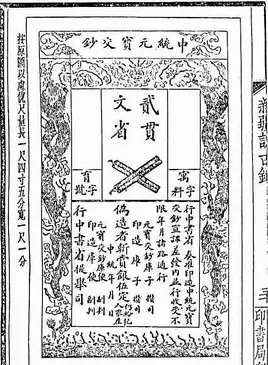 新疆訪古錄
印書局
中統元寶交鈔
貳貫
文省
字料
字號
行中書省 奏准印造中統元寶
交鈔宣課差發內並行收受不
限年月諸路通行
元寶交鈔庫子 攢司
印造庫子 攢司
偽造者斬賞銀伍定仍給犯人家產
中統 年 月 日
元寶交鈔庫使副判
印造庫使副判
行中書省提舉司
按原圖以慮俿尺量長一尺四寸五分寬一尺一分